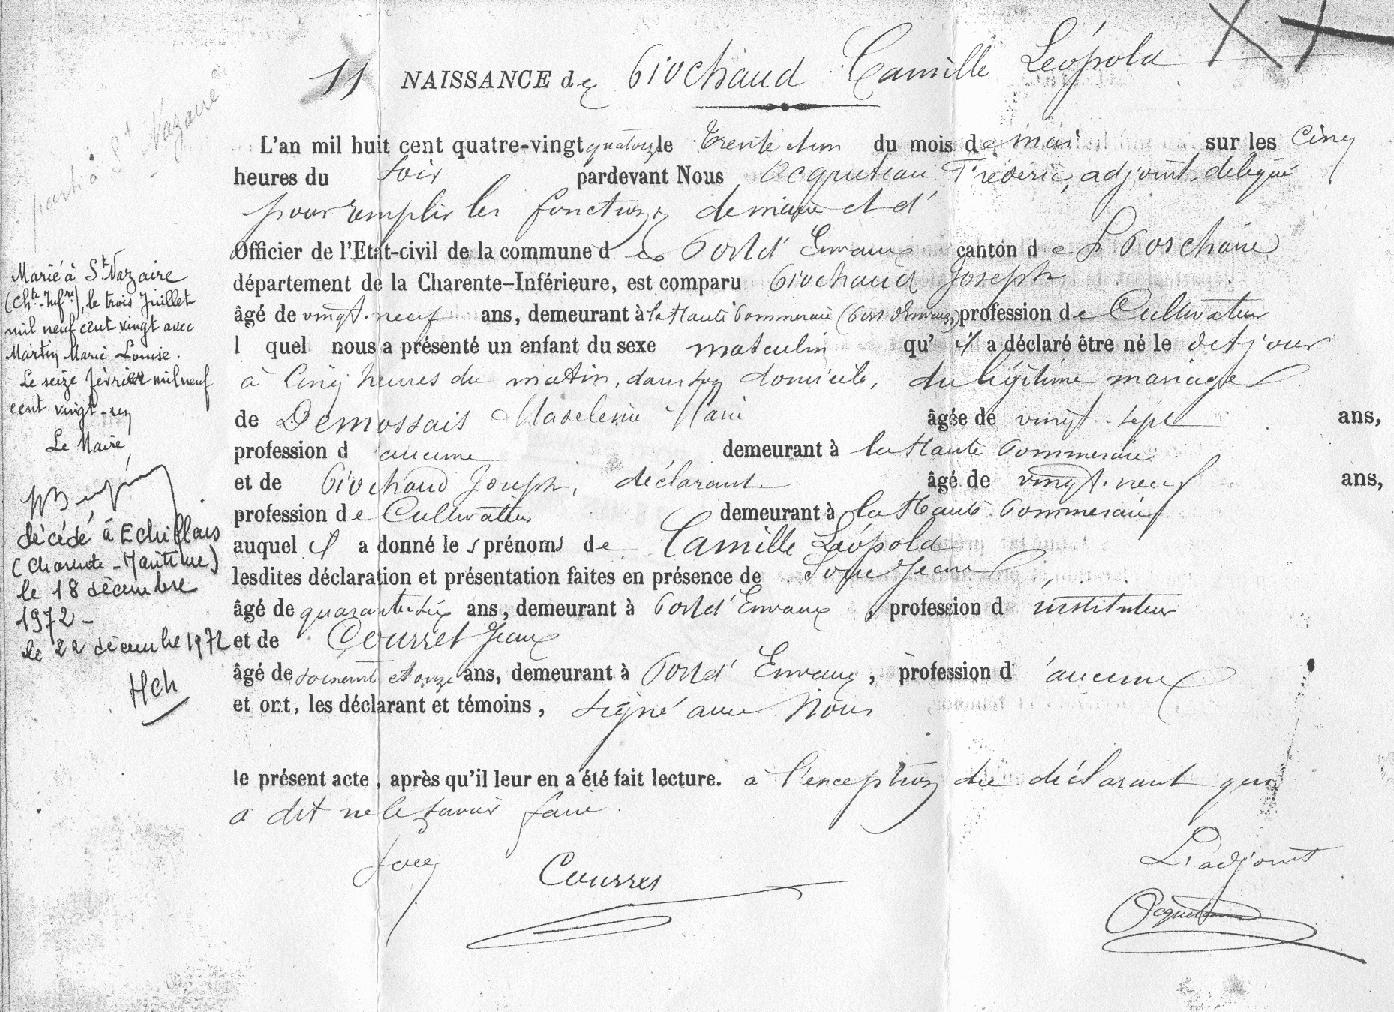 11 NAISSANCE de Pivchaud Camille Léopold
L'an mil huit cent quatre-vingt quatorze le trente et un du mois de mai sur les cinq
heures du soir pardevant Nous Acquiteau Frédéric, adjoint délégué
pour remplir les fonctions de maire et d'
Officier de l'Etat-civil de la commune de Port d'Envaux canton de St Porchaire
département de la Charente-Inférieure, est comparu Pivchaud Joseph
âgé de vingt-neuf ans, demeurant à la Haute Pommeraie (Port d'Envaux) profession de Cultivateur
lquel nous a présenté un enfant du sexe masculin qu'il a déclaré être né le dit jour
à cinq heures du matin, dans son domicile, du légitime mariage
de Demossais Madeleine Marie âgée de vingt-sept ans,
profession d aucune demeurant à la Haute Pommeraie
et de Pivchaud Joseph, déclarant âgé de vingt-neuf ans,
profession de Cultivateur demeurant à la Haute Pommeraie
auquel il a donné les prénoms de Camille Léopold
lesdites déclaration et présentation faites en présence de Jean
âgé de quarante six ans, demeurant à Port d'Envaux, profession d instituteur
et de Courret Jean
âgé de soixante et onze ans, demeurant à Port d'Envaux, profession d'aucune
et ont, les déclarant et témoins, signé avec Nous
le présent acte, après qu'il leur en a été fait lecture. à l'exception du déclarant qui
a dit ne le savoir faire.
Courret
L'adjoint
parti à St Nazaire
Marié à St Nazaire
(Chte Infre), le trois Juillet
mil neuf cent vingt avec
Martin Marie Louise.
Le seize février mil neuf
cent vingt-un
Le Maire,
Décédé à Echillais
(Charente-Maritime)
le 18 décembre
1972-
le 22 décembre 1972